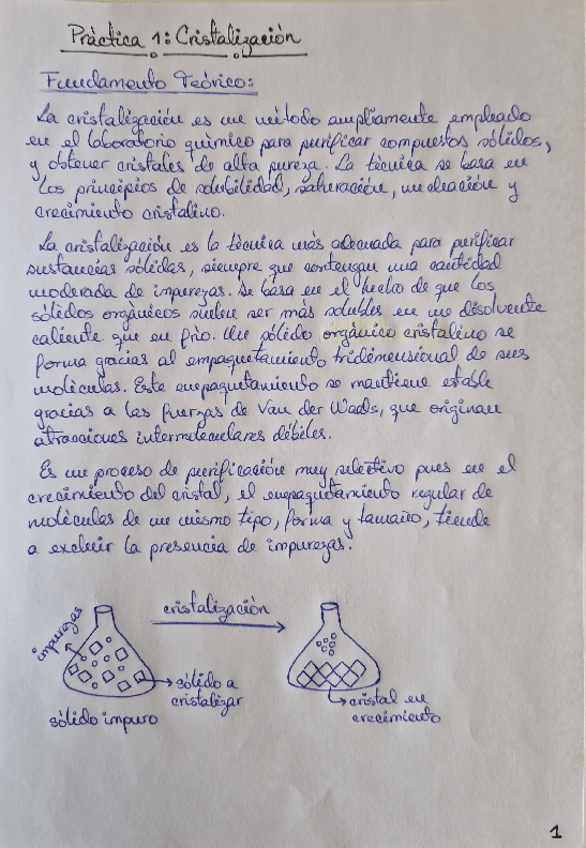 Práctica 1: Cristalización
Fundamento Teórico:
La cristalización es un método ampliamente empleado
en el laboratorio químico para purificar compuestos sólidos,
y obtener cristales de alta pureza. La técnica se basa en
los principios de solubilidad, saturación, nucleación y
crecimiento cristalino.
La cristalización es la técnica más adecuada para purificar
sustancias sólidas, siempre que contengan una cantidad
moderada de impurezas. Se basa en el hecho de que los
sólidos orgánicos suelen ser más solubles en un disolvente
caliente que en frío. Un sólido orgánico cristalino se
forma gracias al empaquetamiento tridimensional de sus
moléculas. Este empaquetamiento se mantiene estable
gracias a las fuerzas de Van der Waals, que originan
atracciones intermoleculares débiles.
Es un proceso de purificación muy selectivo pues en el
crecimiento del cristal, el empaquetamiento regular de
moléculas de un mismo tipo, forma y tamaño, tiende
a excluir la presencia de impurezas.
impurezas
cristalización
sólido a
cristalizar
sólido impuro
cristal en
crecimiento
1